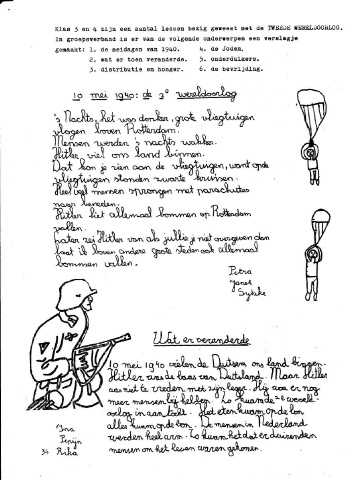 Klas 3 en 4 zijn een aantal lessen bezig geweest met de TWEEDE WERELDOORLOG.
In groepsverband is er van de volgende onderwerpen een verslagje
gemaakt: 1. de meidagen van 1940. 4. de Joden.
2. wat er toen veranderde. 5. onderduikers.
3. distributie en honger. 6. de bevrijding.
10 mei 1940: de 2e wereldoorlog
's Nachts, het was donker, grote vliegtuigen
vlogen boven Rotterdam.
Mensen werden 's nachts wakker.
Hitler, viel ons land binnen.
Dat kon je zien aan de vliegtuigen, want op de
vliegtuigen stonden zwarte kruisen.
Heel veel mensen sprongen met parachutes
naar beneden.
Hitler liet allemaal bommen op Rotterdam
vallen.
Later zei Hitler van als jullie je niet overgeven dan
laat ik boven andere grote steden ook allemaal
bommen vallen.
Petra
Janet
Sytske
Wat er veranderde
10 mei 1940 vielen de Duitsers ons land binnen.
Hitler was de baas van Duitsland. Maar Hitler
was niet te vreden met zijn leger. Hij wou er nog
meer mensen bij hebben. Zo kwam de 2e wereld-
oorlog in aantocht. Het eten kwam op de bon
alles kwam op de bon. De mensen in Nederland
werden heel arm. Zo kwam het dat er duizenden
mensen om het leven waren gekomen.
Ina
Pericijn
34 Rika